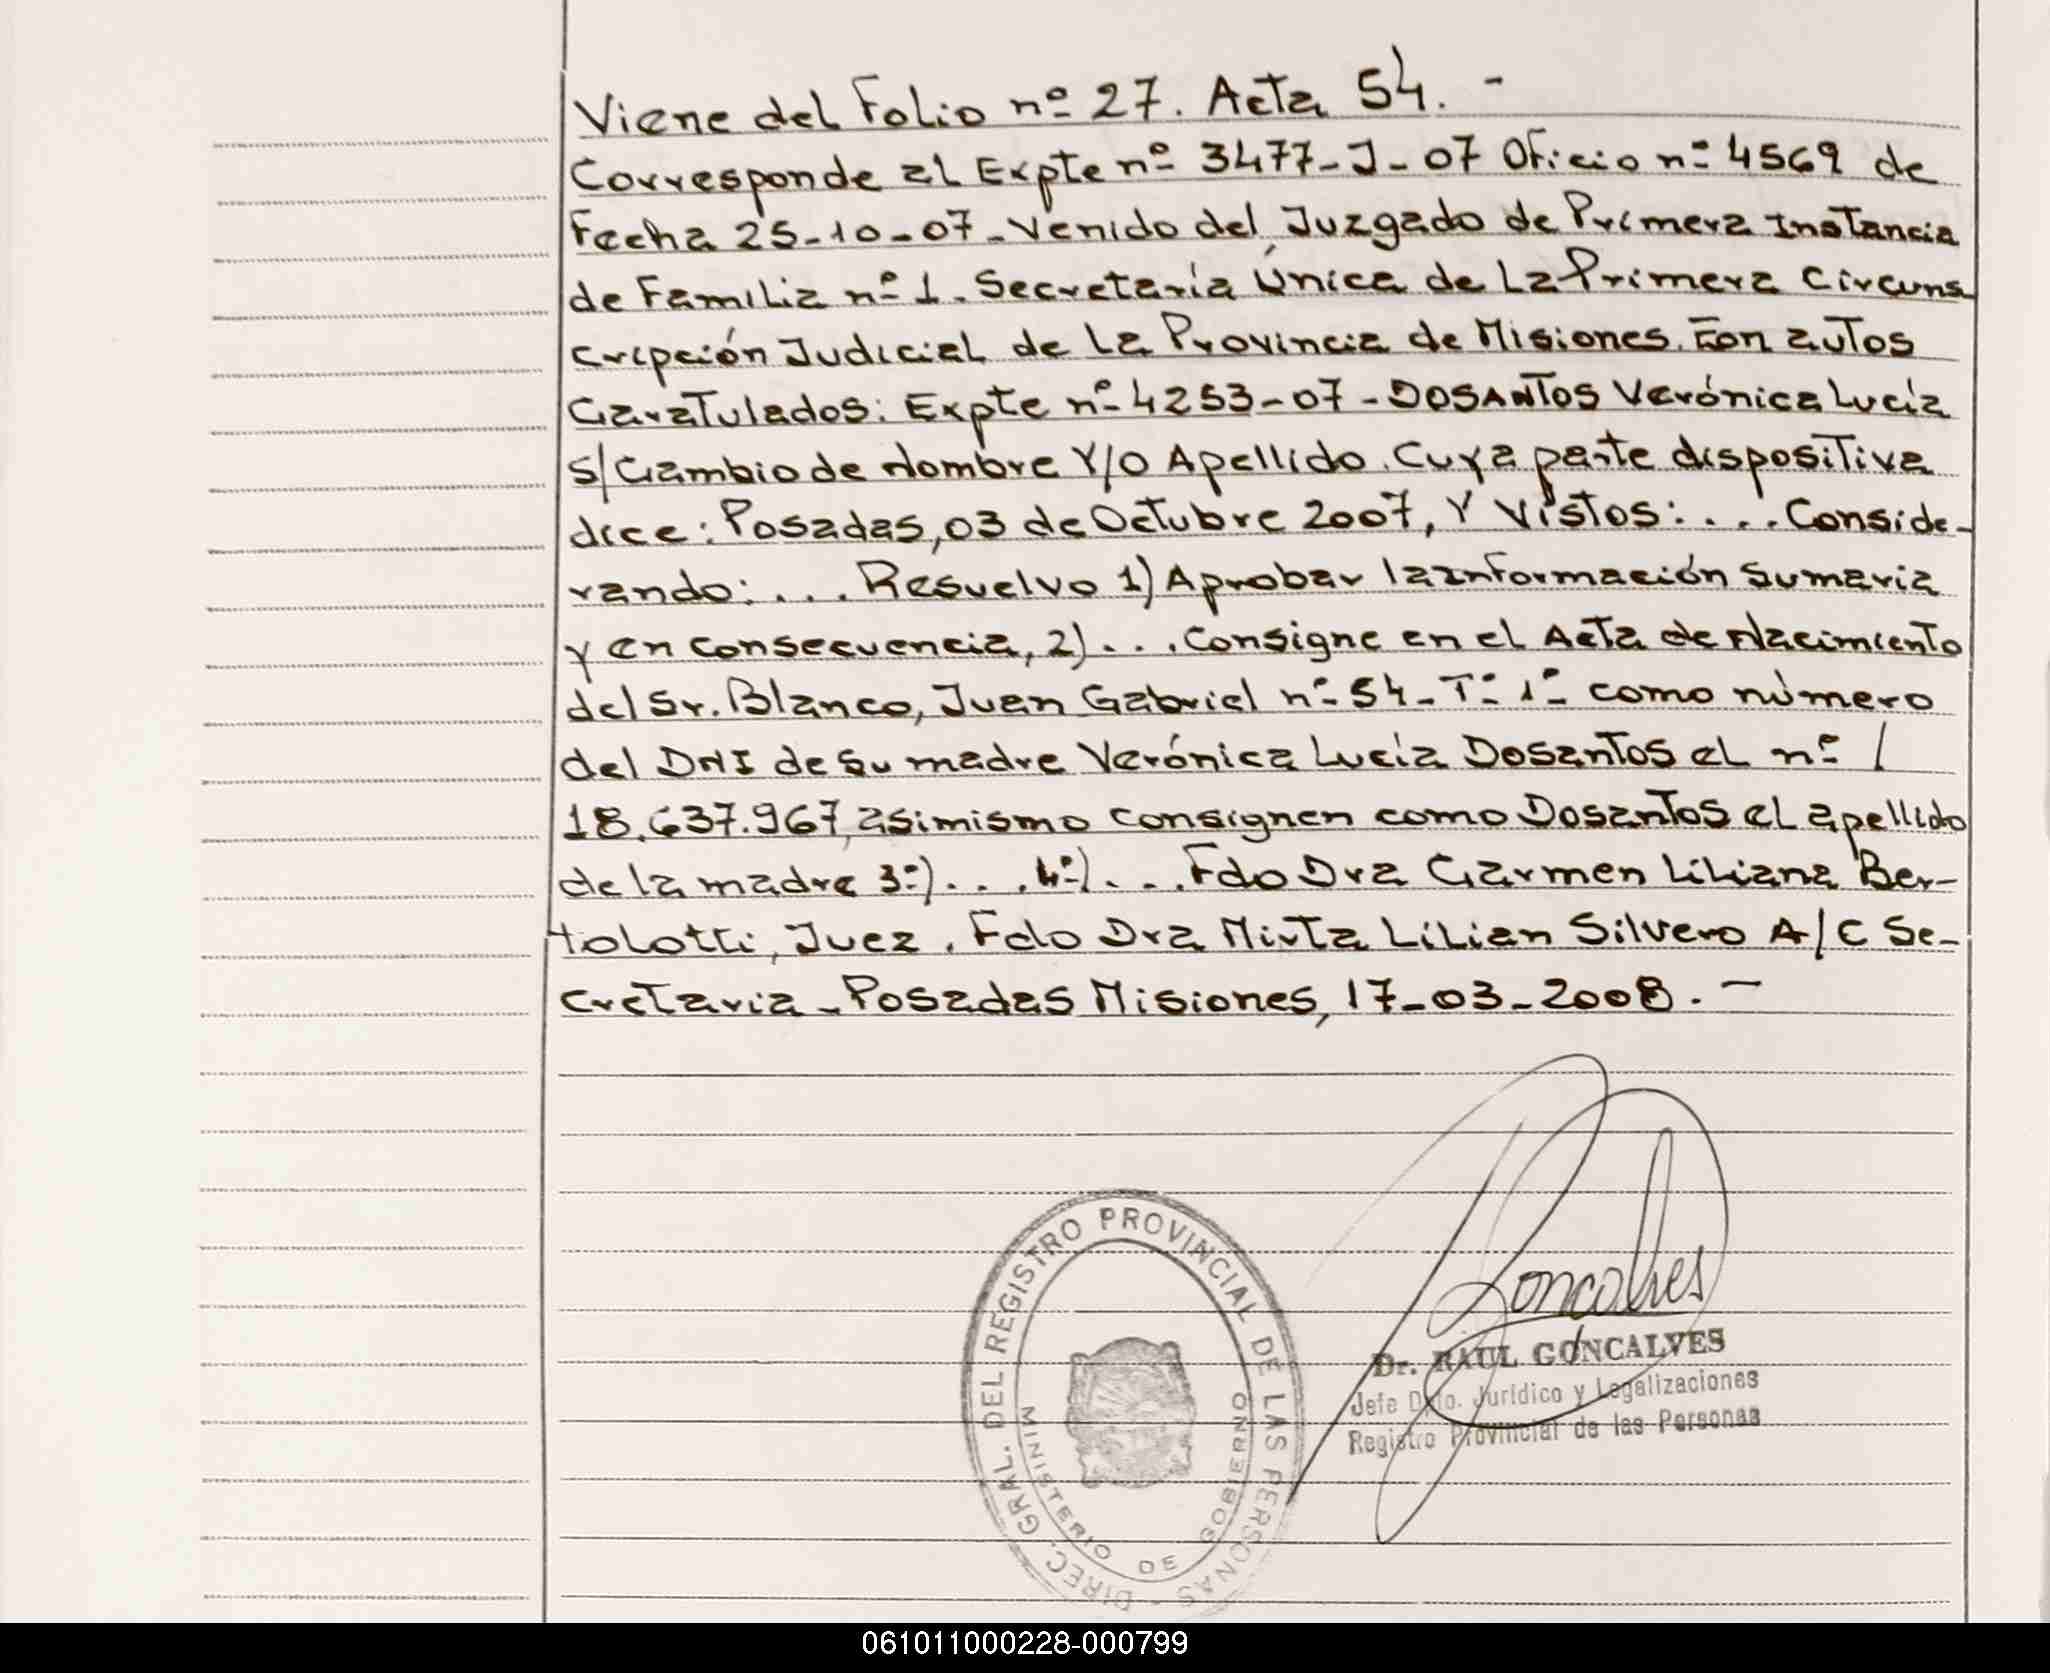 Viene del Folio nº 27. Acta 54. -
Corresponde al Expte nº 3477-J-07 Oficio nº 4569 de
Fecha 25-10-07-Venido del Juzgado de Primera Instancia
de Familia nº 1. Secretaría Única de La Primera Circuns
cripción Judicial de La Provincia de Misiones. Eon autos
Caratulados: Expte nº 4253-07-DOSANTOS Verónica Lucía
S/Cambio de Nombre Y/O Apellido. Cuya parte dispositiva
dice: Posadas, 03 de Octubre 2007, Y Vistos: .... Conside-
rando: .... Resuelvo 1) Aprobar la Información Sumaria
y en consecuencia, 2) .... Consigne en el Acta de Nacimiento
del Sr. Blanco, Juan Gabriel nº 54-Tº 1º como número
del DNI de su madre Verónica Lucía Dosantos el nº /
18.637.967, asimismo consignen como Dosantos el apellido
de la madre 3º) .... 4º) .... Fdo Dra Carmen Liliana Ber-
tolotti, Juez. Fdo Dra Mirta Lilian Silvero A/C Se-
cretaria-Posadas Misiones, 17-03-2008.-
DIREC. GRAL. DEL REGISTRO PROVINCIAL DE LAS PERSONAS -
MINISTERIO DE GOBIERNO
Goncalves
Dr. RAUL GONCALVES
Jefe Dpto. Jurídico y Legalizaciones
Registro Provincial de las Personas
061011000228-000799